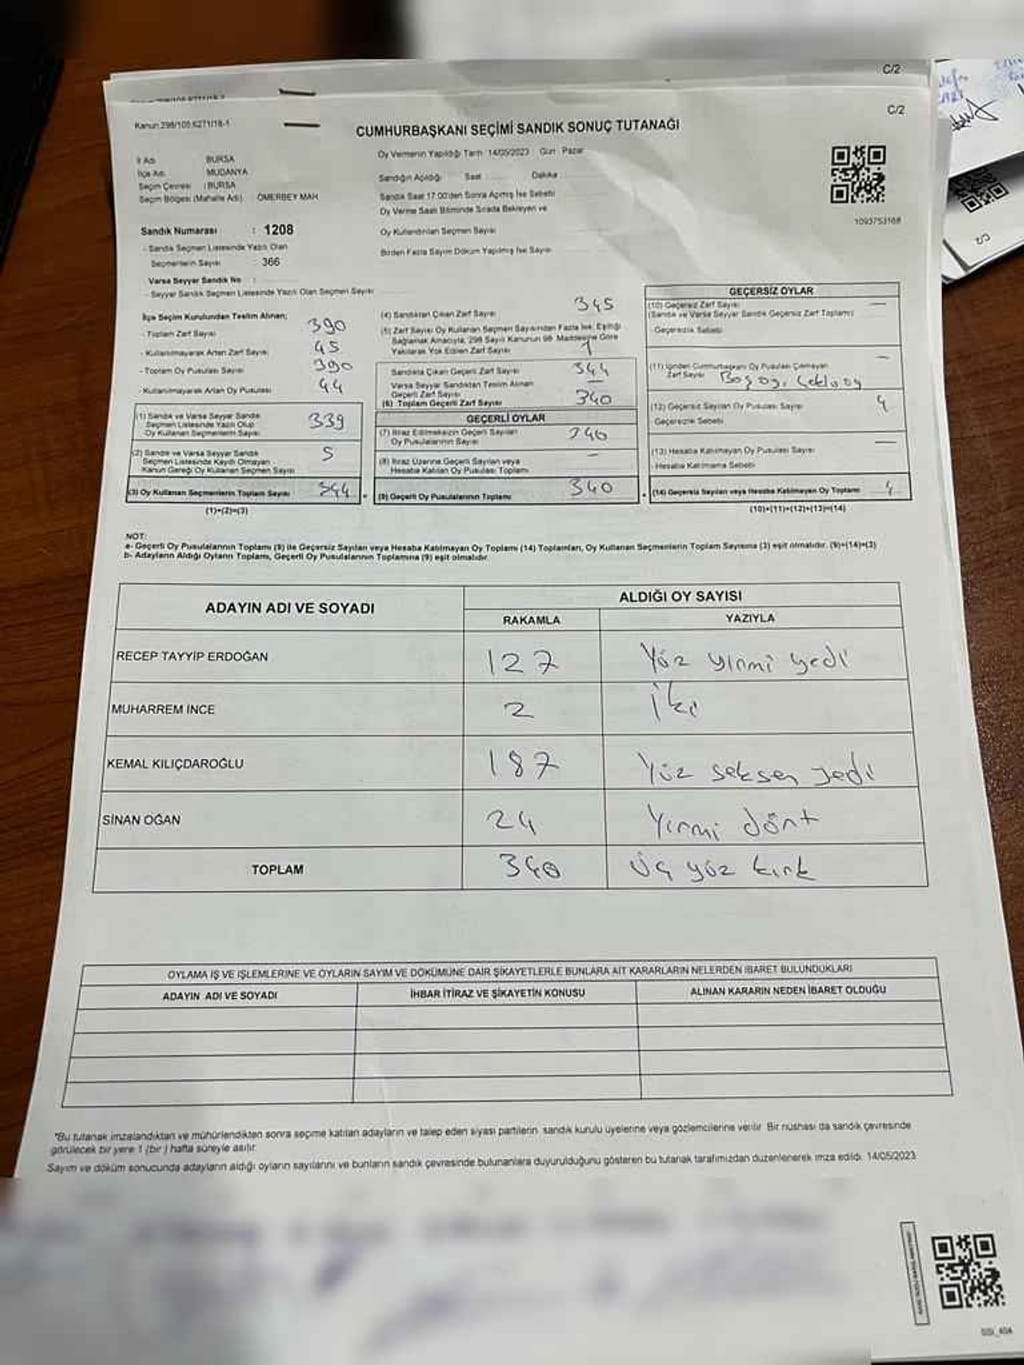 C/2
C/2
Kanun:298/105.6271/18-1
CUMHURBAŞKANI SEÇİMİ SANDIK SONUÇ TUTANAĞI
İl Adı BURSA
İlçe Adı MUDANYA
Seçim Çevresi : BURSA
Seçim Bölgesi (Mahalle Adı) ÖMERBEY MAH
Oy Vermenin Yapıldığı Tarih: 14/05/2023 Gün: Pazar
Sandığın Açıldığı Saat Dakika
Sandık Saat 17.00'den Sonra Açılmış İse Sebebi
Oy Verme Saati Bitiminde Sırada Bekleyen ve
Oy Kullandırılan Seçmen Sayısı
Birden Fazla Sayım Döküm Yapılmış İse Sayısı
1093753168
Sandık Numarası : 1208
- Sandık Seçmen Listesinde Yazılı Olan
Seçmenlerin Sayısı : 366
Varsa Seyyar Sandık No :
- Seyyar Sandık Seçmen Listesinde Yazılı Olan Seçmen Sayısı
İlçe Seçim Kurulundan Teslim Alınan;
- Toplam Zarf Sayısı 390
- Kullanılmayarak Artan Zarf Sayısı 45
- Toplam Oy Pusulası Sayısı 390
- Kullanılmayarak Artan Oy Pusulası 44
(1) Sandık ve Varsa Seyyar Sandık
Seçmen Listesinde Yazılı Olup
Oy Kullanan Seçmenlerin Sayısı 339
(2) Sandık ve Varsa Seyyar Sandık
Seçmen Listesinde Kayıtlı Olmayan
Kanun Gereği Oy Kullanan Seçmen Sayısı 5
(3) Oy Kullanan Seçmenlerin Toplam Sayısı 344
(1)+(2)=(3)
(4) Sandıktan Çıkan Zarf Sayısı 345
(5) Zarf Sayısı Oy Kullanan Seçmen Sayısından Fazla İse, Eşitliği
Sağlamak Amacıyla, 298 Sayılı Kanunun 98. Maddesine Göre
Yakılarak Yok Edilen Zarf Sayısı 1
Sandıkta Çıkan Geçerli Zarf Sayısı 344
Varsa Seyyar Sandıktan Teslim Alınan
Geçerli Zarf Sayısı —
(6) Toplam Geçerli Zarf Sayısı 340
GEÇERLİ OYLAR
(7) İtiraz Edilmeksizin Geçerli Sayılan
Oy Pusulalarının Sayısı 340
(8) İtiraz Üzerine Geçerli Sayılan veya
Hesaba Katılan Oy Pusulası Toplamı —
(9) Geçerli Oy Pusulalarının Toplamı 340
GEÇERSİZ OYLAR
(10) Geçersiz Zarf Sayısı —
(Sandık ve Varsa Seyyar Sandık Geçersiz Zarf Toplamı)
- Geçersizlik Sebebi
(11) İçinden Cumhurbaşkanı Oy Pusulası Çıkmayan —
Zarf Sayısı
(12) Geçersiz Sayılan Oy Pusulası Sayısı 4
Geçersizlik Sebebi
(13) Hesaba Katılmayan Oy Pusulası Sayısı —
- Hesaba Katılmama Sebebi
(14) Geçersiz Sayılan veya Hesaba Katılmayan Oy Toplamı 4
(10)+(11)+(12)+(13)=(14)
NOT:
a- Geçerli Oy Pusulalarının Toplamı (9) ile Geçersiz Sayılan veya Hesaba Katılmayan Oy Toplamı (14) Toplamları, Oy Kullanan Seçmenlerin Toplam Sayısına (3) eşit olmalıdır. (9)+(14)=(3)
b- Adayların Aldığı Oyların Toplamı, Geçerli Oy Pusulalarının Toplamına (9) eşit olmalıdır.
ADAYIN ADI VE SOYADI ALDIĞI OY SAYISI
RAKAMLA YAZIYLA
RECEP TAYYİP ERDOĞAN 127 Yüz yirmi yedi
MUHARREM İNCE 2 iki
KEMAL KILIÇDAROĞLU 187 Yüz seksen yedi
SİNAN OĞAN 24 Yirmi dört
TOPLAM 340 üç yüz kırk
OYLAMA İŞ VE İŞLEMLERİNE VE OYLARIN SAYIM VE DÖKÜMÜNE DAİR ŞİKAYETLERLE BUNLARA AİT KARARLARIN NELERDEN İBARET BULUNDUKLARI
ADAYIN ADI VE SOYADI İHBAR İTİRAZ VE ŞİKAYETİN KONUSU ALINAN KARARIN NEDEN İBARET OLDUĞU
*Bu tutanak imzalandıktan ve mühürlendikten sonra seçime katılan adayların ve talep eden siyasi partilerin sandık kurulu üyelerine veya gözlemcilerine verilir. Bir nüshası da sandık çevresinde
görülecek bir yere 1 (bir) hafta süreyle asılır.
Sayım ve döküm sonucunda adayların aldığı oyların sayılarını ve bunların sandık çevresinde bulunanlara duyurulduğunu gösteren bu tutanak tarafımızdan düzenlenerek imza edildi. 14/05/2023